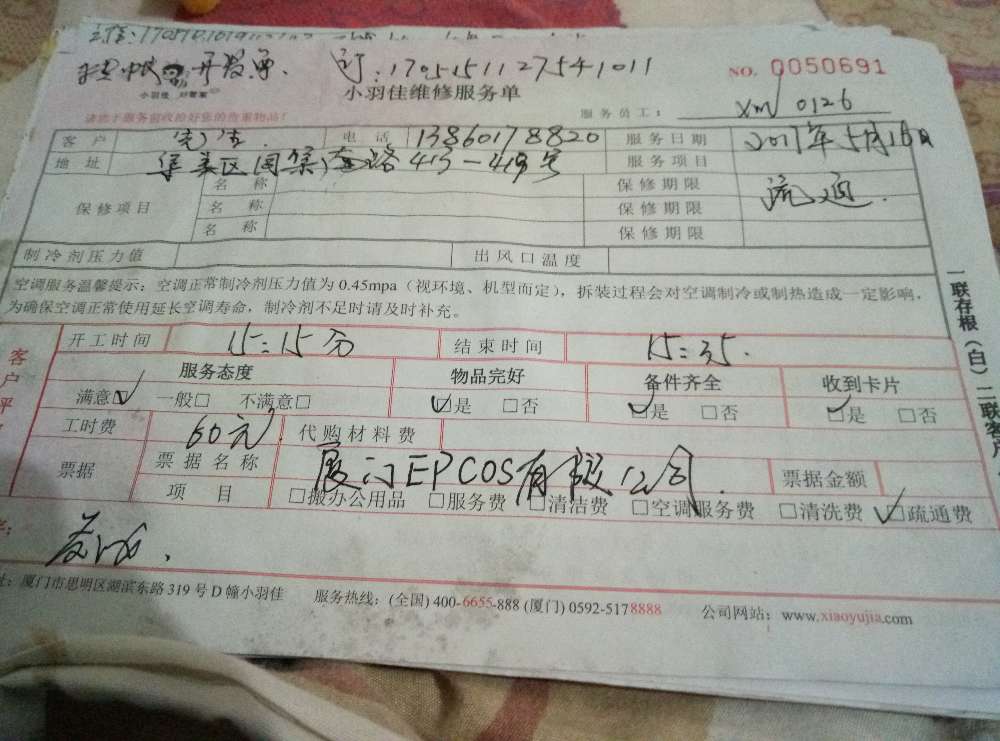 订:1705151127541011
NO. 0050691
小羽佳 好管家
小羽佳维修服务单
服务员工: xm 0126
请您于服务前收拾好您的贵重物品!
客户 电话 13860178820 服务日期 2017年5月16日
地址 集美区 419-419号 服务项目 疏通.
保修项目 名称 保修期限
名称 保修期限
名称 保修期限
制冷剂压力值 出风口温度
空调服务温馨提示:空调正常制冷剂压力值为 0.45mpa(视环境、机型而定),拆装过程会对空调制冷或制热造成一定影响,
为确保空调正常使用延长空调寿命,制冷剂不足时请及时补充。
一联存根(白)二联客户
开工时间 15:15分 结束时间 15:35.
客户评
服务态度 物品完好 备件齐全 收到卡片
满意☑ 一般□ 不满意□ ☑是 □否 ☑是 □否 ☑是 □否
工时费 60元 代购材料费
票据 票据名称 厦门EPCOS有限公司. 票据金额
项目 □搬办公用品 □服务费 □清洁费 □空调服务费 □清洗费 ☑疏通费
址:厦门市思明区湖滨东路 319 号 D 幢小羽佳 服务热线:(全国) 400-6655-888 (厦门) 0592-5178888 公司网站:www.xiaoyujia.com